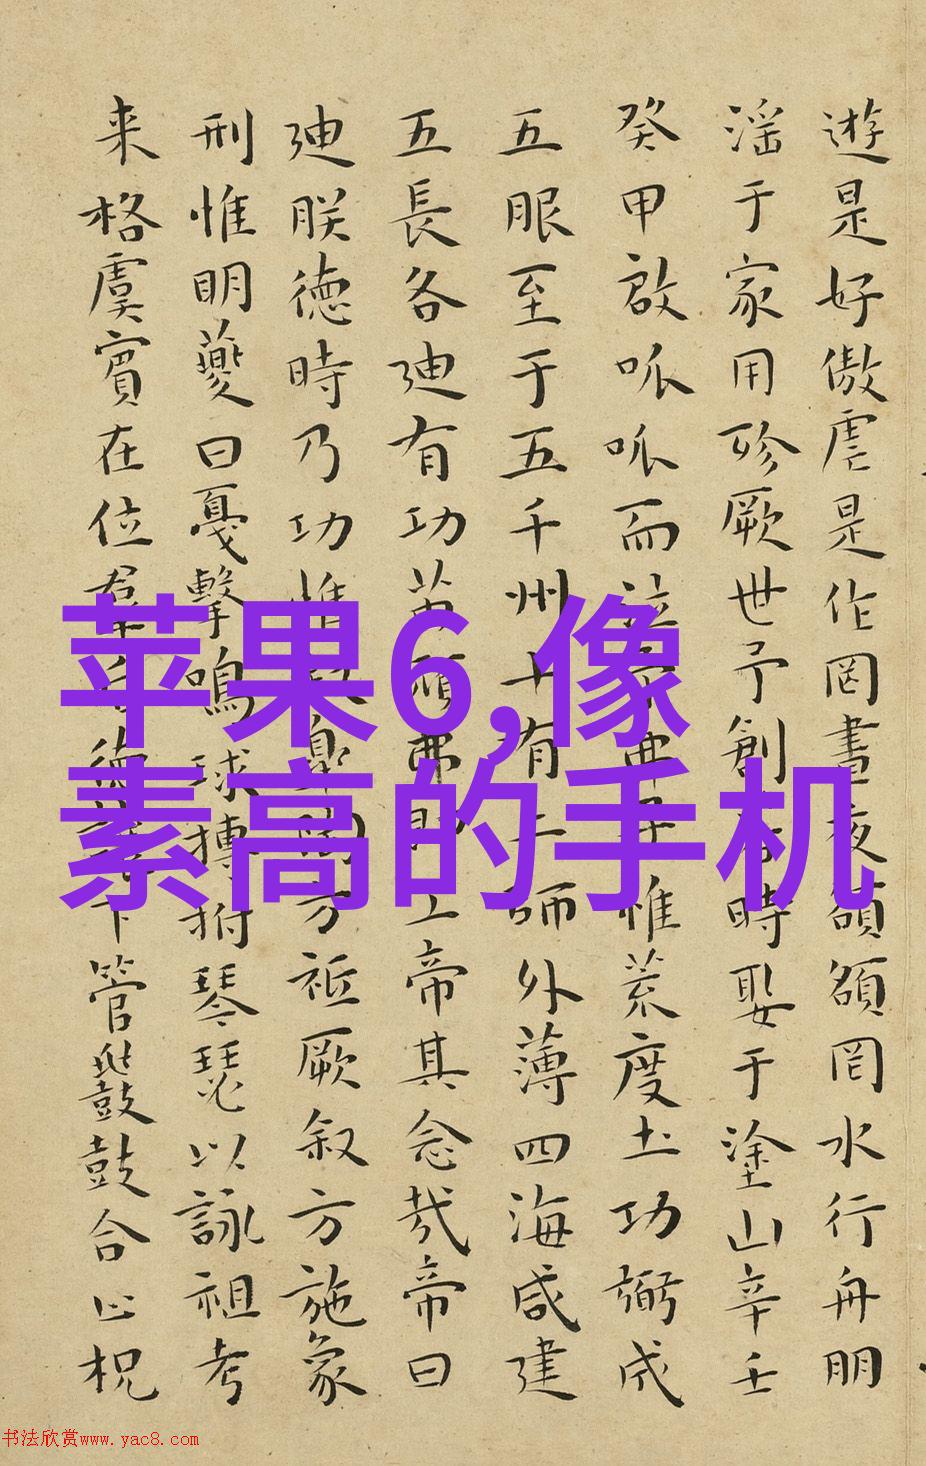 遊是好傲虐是作罔晝夜頟頟罔水行舟朋
淫于家用殄厥世予創若時娶于塗山辛壬
癸甲啟呱呱而泣予弗子惟荒度土功弼成
五服至于五千州十有二師外薄四海咸建
五長各迪有功苗頑弗即工帝其念哉帝曰
迪朕德時乃功惟敘皋陶方祗厥叙方施象
刑惟明夔曰戛擊鳴球搏拊琴瑟以詠祖考
来格虞賓在位羣后德讓下管鼗鼓合止柷
苹果6,像
素高的手机
书法欣赏www.yac8.com